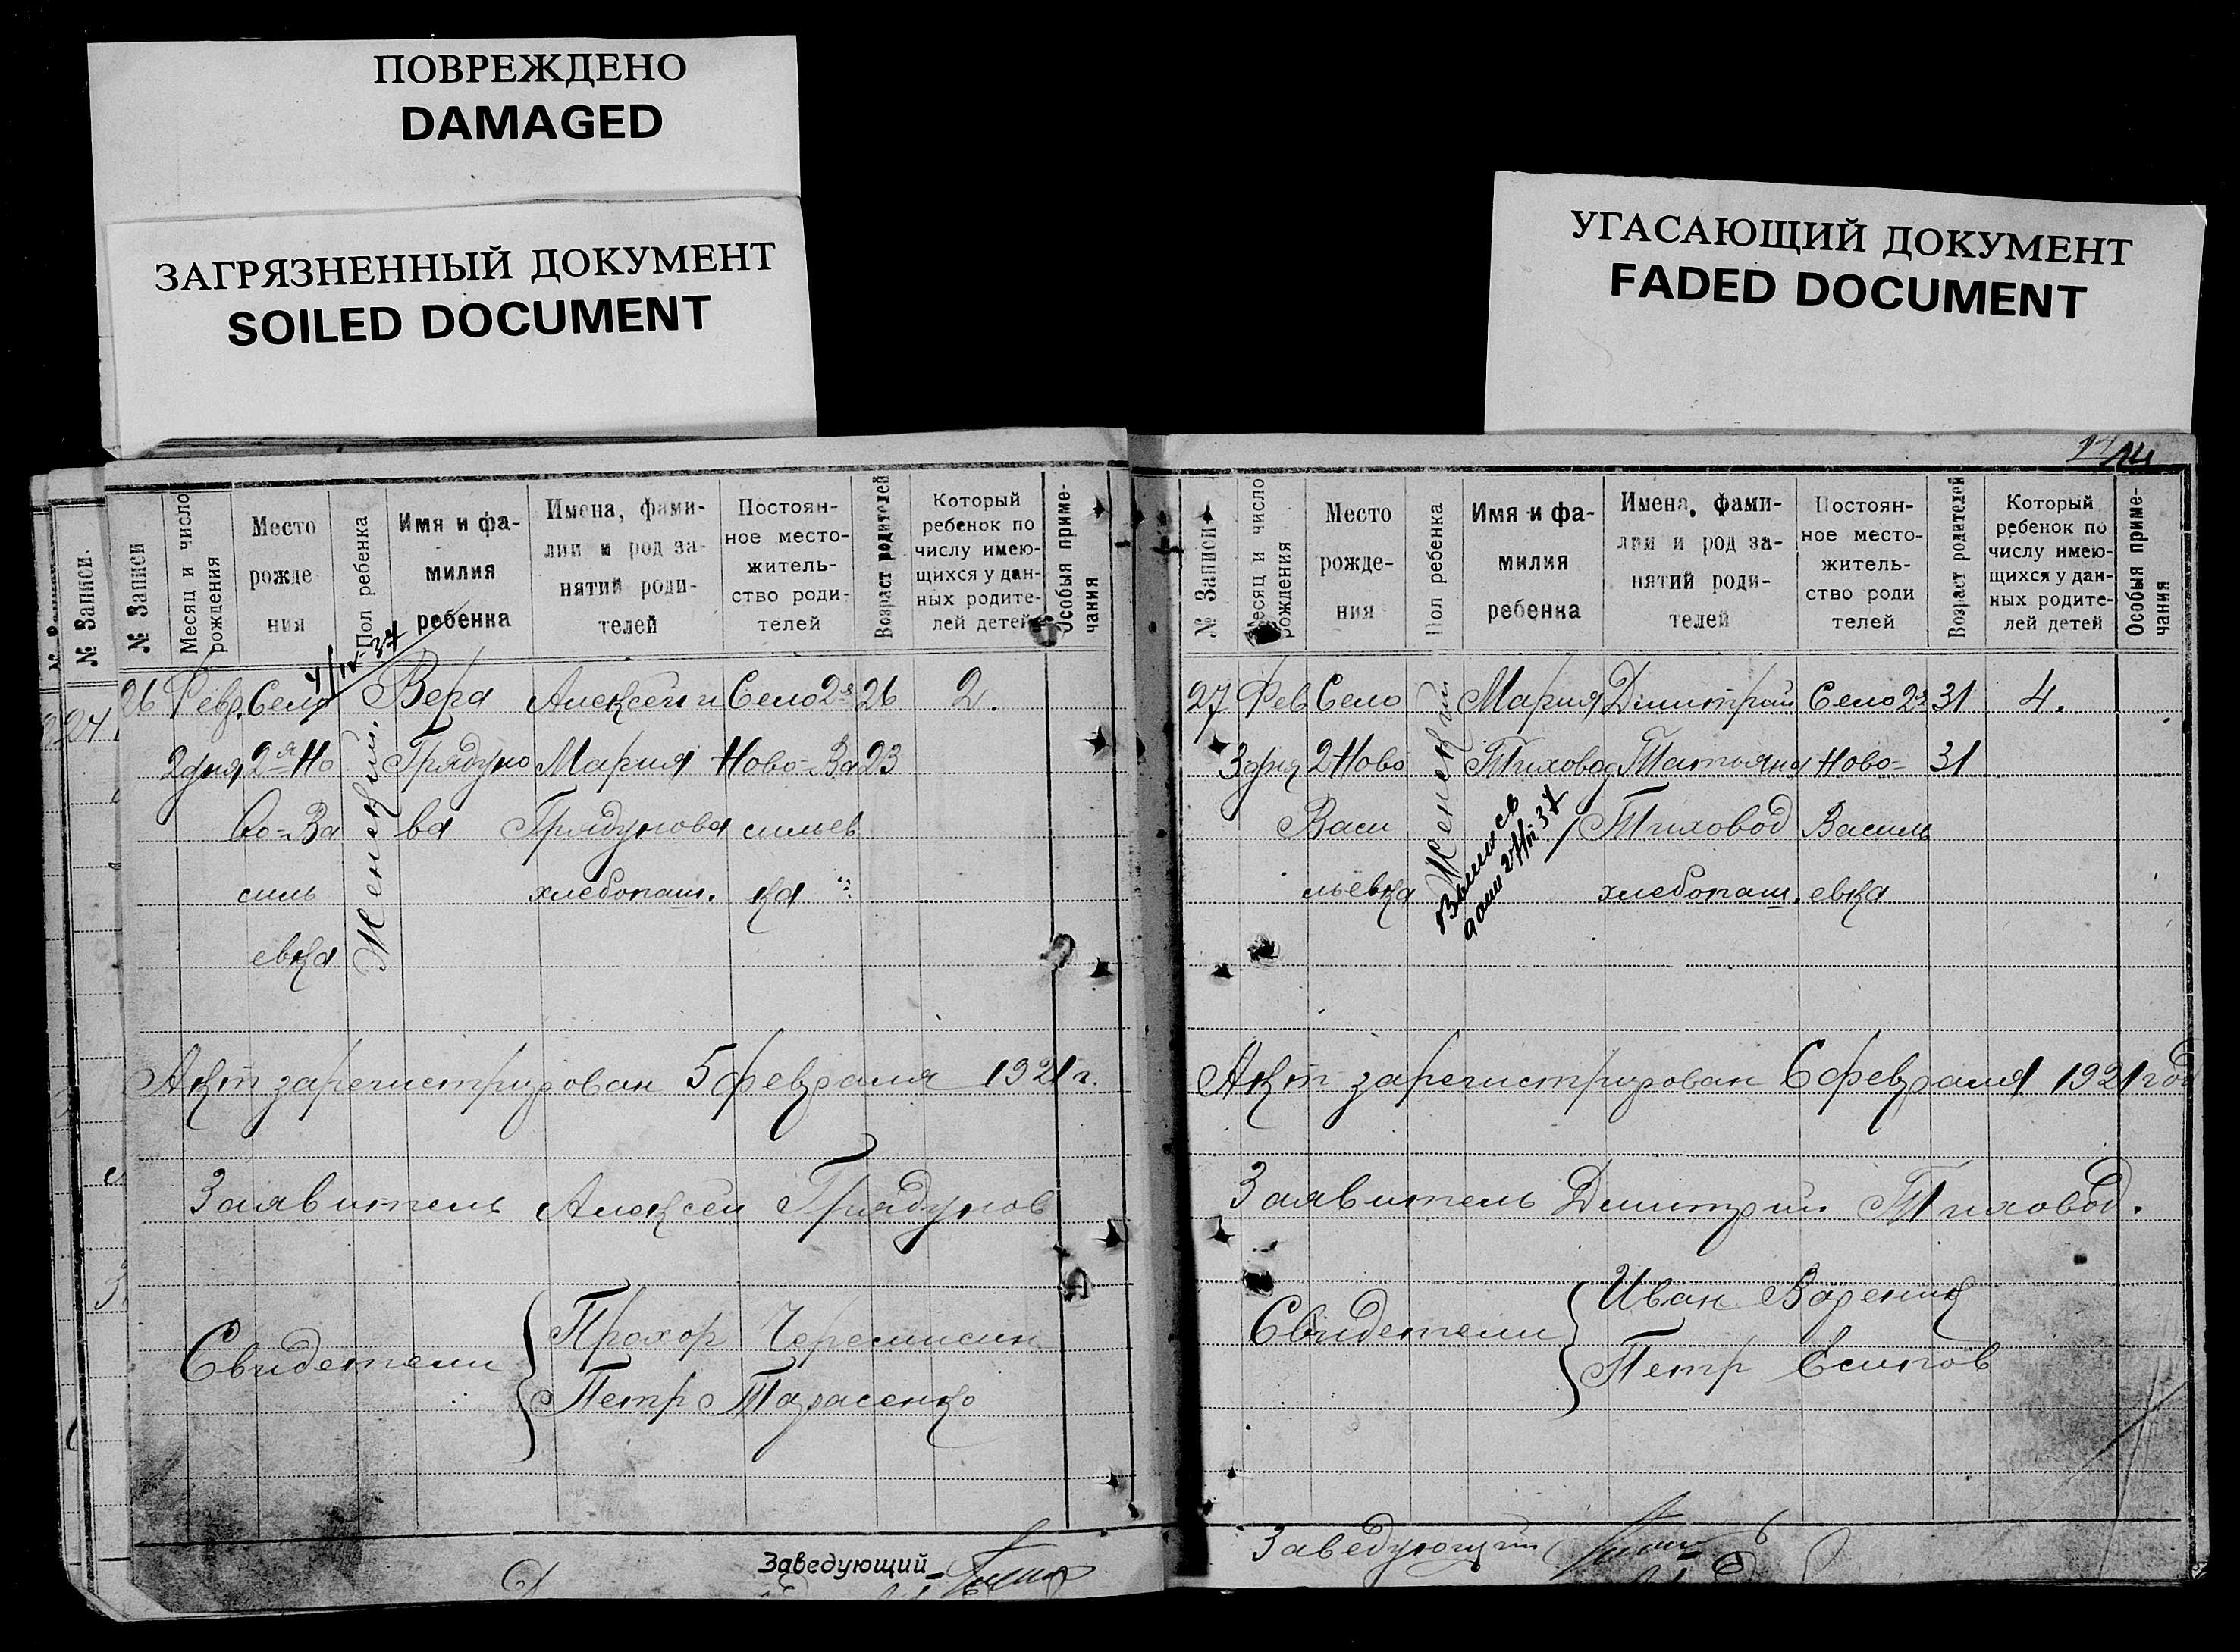 ПОВРЕЖДЕНО
DAMAGED
ЗАГРЯЗНЕННЫЙ ДОКУМЕНТ
SOILED DOCUMENT
УГАСАЮЩИЙ ДОКУМЕНТ
FADED DOCUMENT
№ Записи
№ Записи
Месяц и число рождения
Место
рожде
ния
Пол ребенка
Имя и фа-
милия
ребенка
Имена, фами-
лии и род за-
нятий роди-
телей
Постоян-
ное место-
житель-
ство роди-
телей
Возраст родителей
Который
ребенок по
числу имею-
щихся у дан-
ных родите-
лей детей
Особыя приме-
чания
26 Февр. Село Вера Алексей и Село 2я 26 2.
2 дня 2я Но Грядуно Мария Ново-Ва 23
во-Ва ва Грядунова сильев
силь хлебопаш. ка
евка
Женский.
Акт зарегистрирован 5 февраля 1921 г.
Заявитель Алексей Грядунов
Свидетели
Прохор Черемисин
Петр Тарасенко
Заведующий
14
№ Записи
Месяц и число
рождения
Место
рожде-
ния
Пол ребенка
Имя и фа-
милия
ребенка
Имена, фами-
лии и род за-
нятий роди-
телей
Постоян-
ное место-
житель-
ство роди
телей
Возраст родителей
Который
ребенок по
числу имею-
щихся у дан-
ных родите-
лей детей
Особыя приме-
чания
27 Фев Село Мария Димитрий Село 2я 31 4.
3 дня 2 Ново Тиховод Татьяна Ново- 31
Васи Тиховод Василь
льевка хлебопаш. евка
Женский
Акт зарегистрирован 6 февраля 1921 год
Заявитель Димитрий Тиховод.
Свидетели
Иван Вареник
Петр Есипов
Заведующий